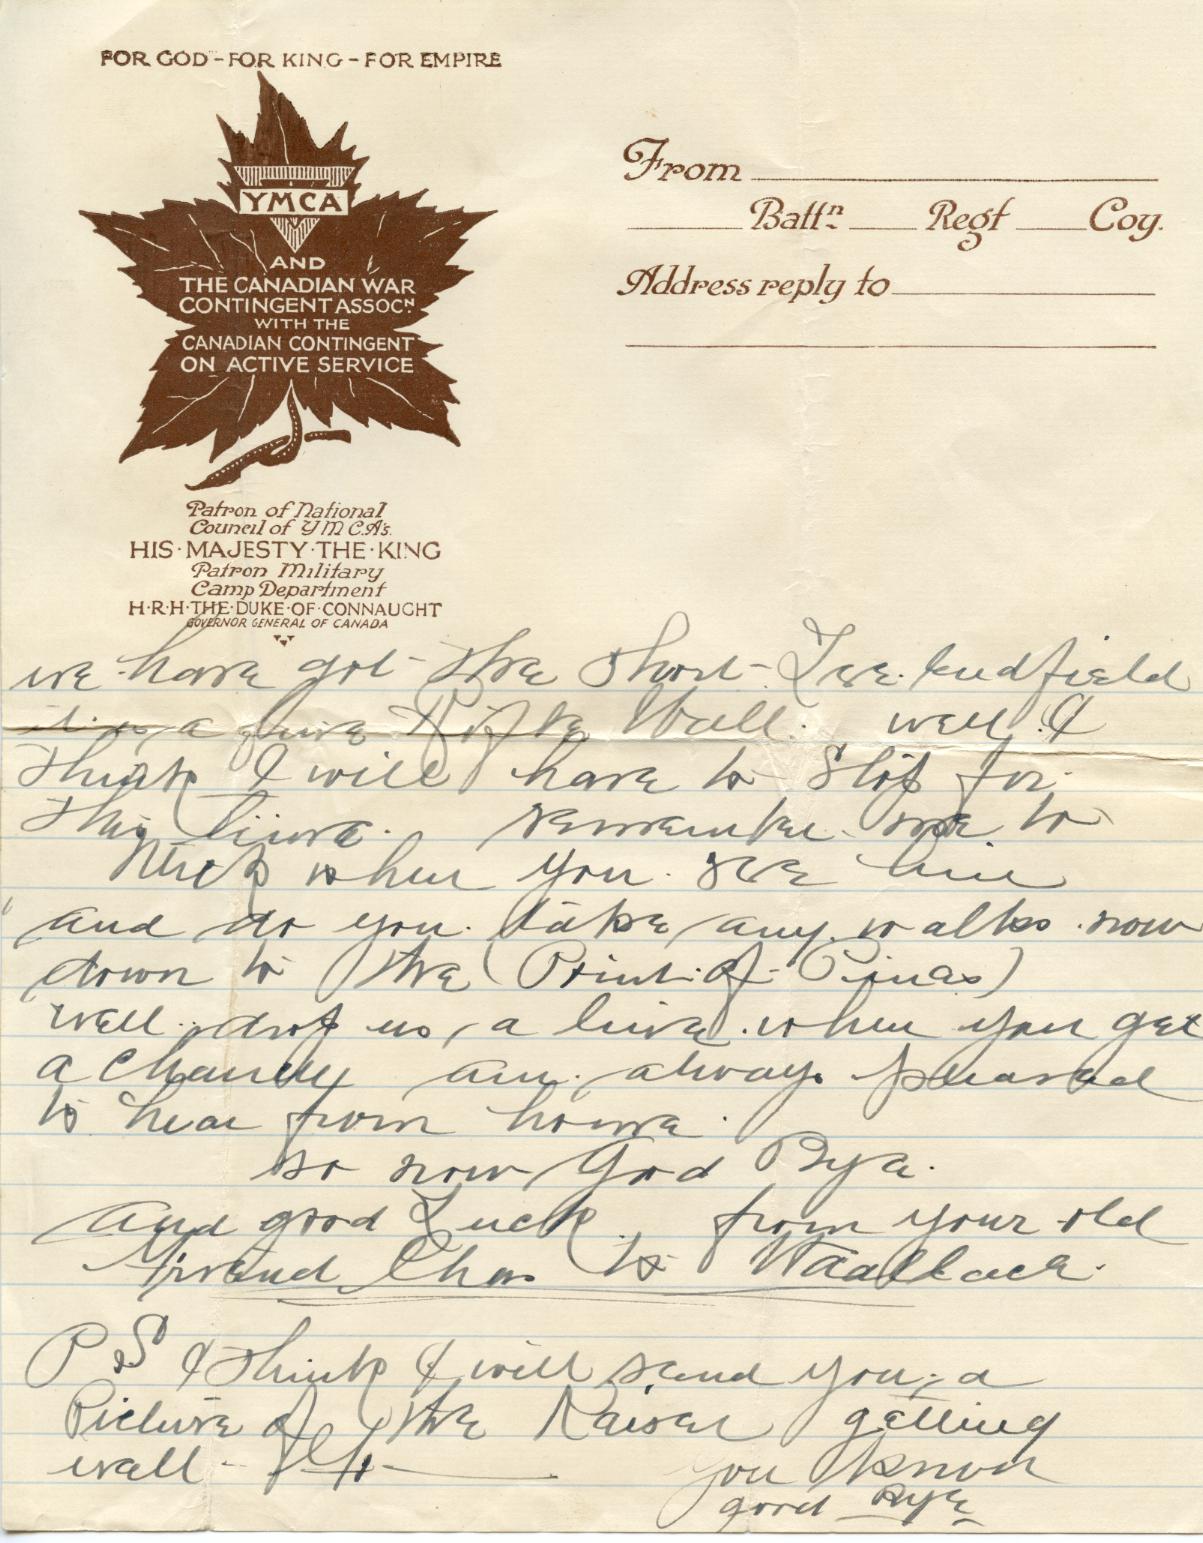 FOR GOD - FOR KING - FOR EMPIRE
YMCA
AND
THE CANADIAN WAR
CONTINGENT ASSOCN
WITH THE
CANADIAN CONTINGENT
ON ACTIVE SERVICE
Patron of National
Council of Y M C A's.
HIS·MAJESTY·THE·KING
Patron Military
Camp Department
H·R·H·THE·DUKE·OF·CONNAUGHT
GOVERNOR GENERAL OF CANADA
From
Battn. Regt Coy.
Address reply to
we have got the Short Lee. Endfield
it is a fine Rifle Wall. well I
think I will have to Stop for
this time. remember me to
Nick when you see him
and do you take any walks now
down to the (Point of Pines)
well drop us a line when you get
a chance am always pleased
to hear from home.
so now Good Bye.
and good Luck from your old
friend Chas Wallace.
P.S I think I will send you a
Picture of the Kaiser getting
wall -
you know
good Bye